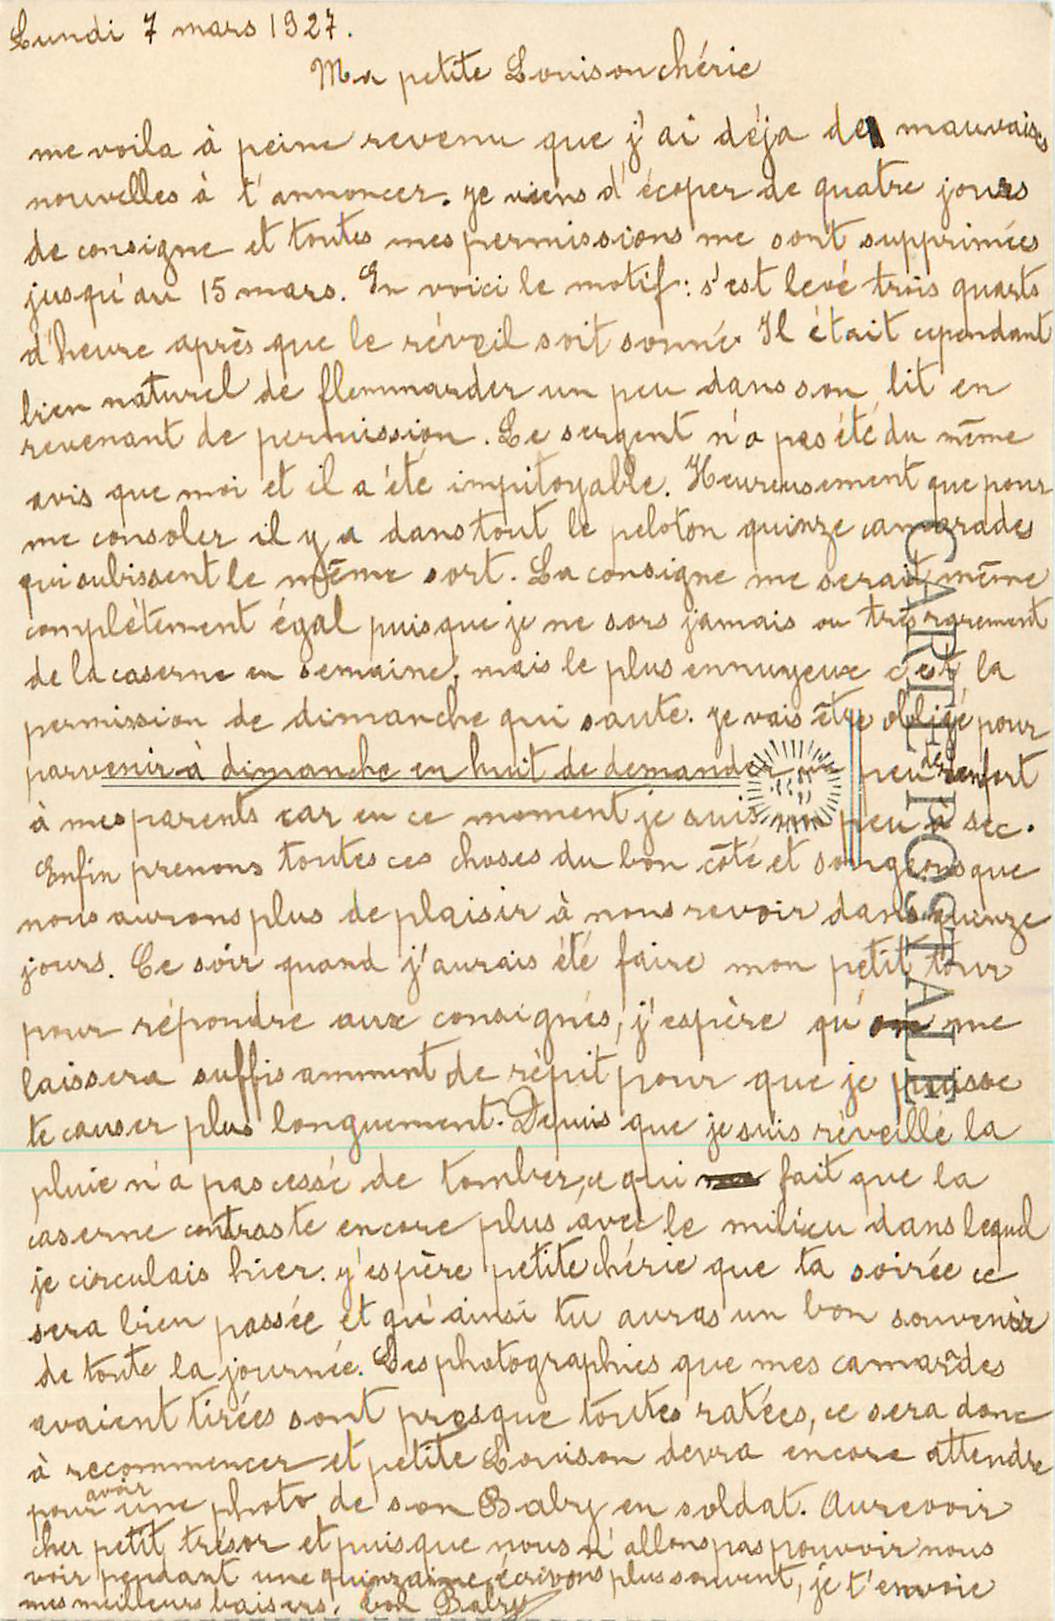 Lundi 7 mars 1927.
Ma petite Louison chérie
me voila à peine revenu que j'ai déja de mauvaises
nouvelles à t'annoncer. Je viens d'écoper de quatre jours
de consigne et toutes mes permissions me sont supprimées
jusqu'au 15 mars. En voici le motif : s'est levé trois quarts
d'heure après que le réveil soit sonné. Il était cependant
bien naturel de flemmarder un peu dans son lit en
revenant de permission. Le sergent n'a pas été du même
avis que moi et il a été impitoyable. Heureusement que pour
me consoler il y a dans tout le peloton quinze camarades
qui subissent le même sort. La consigne me serait même
complétement égal puisque je ne sors jamais ou très rarement
de la caserne en semaine, mais le plus ennuyeux c'est la
permission de dimanche qui saute. Je vais être obligé pour
parvenir à dimanche en huit de demander un peu de renfort
à mes parents car en ce moment je suis un peu à sec.
Enfin prenons toutes ces choses du bon côté et songeons que
nous aurons plus de plaisir à nous revoir dans quinze
jours. Ce soir quand j'aurais été faire mon petit tour
pour répondre aux consignés, j'espère qu'on me
laissera suffisamment de répit pour que je puisse
te causer plus longuement. Depuis que je suis réveillé la
pluie n'a pas cessé de tomber, ce qui fait que la
caserne contraste encore plus avec le milieu dans lequel
je circulais hier. J'espère petite chérie que ta soirée ce
sera bien passée et qu'ainsi tu auras un bon souvenir
de toute la journée. Les photographies que mes camarades
avaient tirées sont presque toutes ratées, ce sera donc
à recommencer et petite Louison devra encore attendre
pour avoir une photo de son Baby en soldat. Aurevoir
cher petit trésor et puisque nous n'allons pas pouvoir nous
voir pendant une quinzaine écrivons plus souvent, je t'envoie
mes meilleurs baisers, ton Baby
CARTE POSTALE